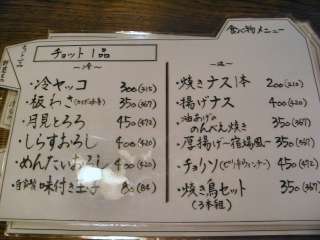 食べ物メニュー
チョット1品
〜冷〜
・冷ヤッコ 300(315)
・板わさ 350(367)
・月見とろろ 450(472)
・しらすおろし 400(420)
・めんたいおろし 400(420)
・自家製味付き玉子 80(84)
〜温〜
・焼きナス1本 200(210)
・揚げナス 400(420)
・油あげののんべえ焼き 350(367)
・厚揚げ一宿場風 350(367)
・チョリソ(ピリ辛ウインナー) 450(472)
・焼き鳥セット 350(367)
(3本組)